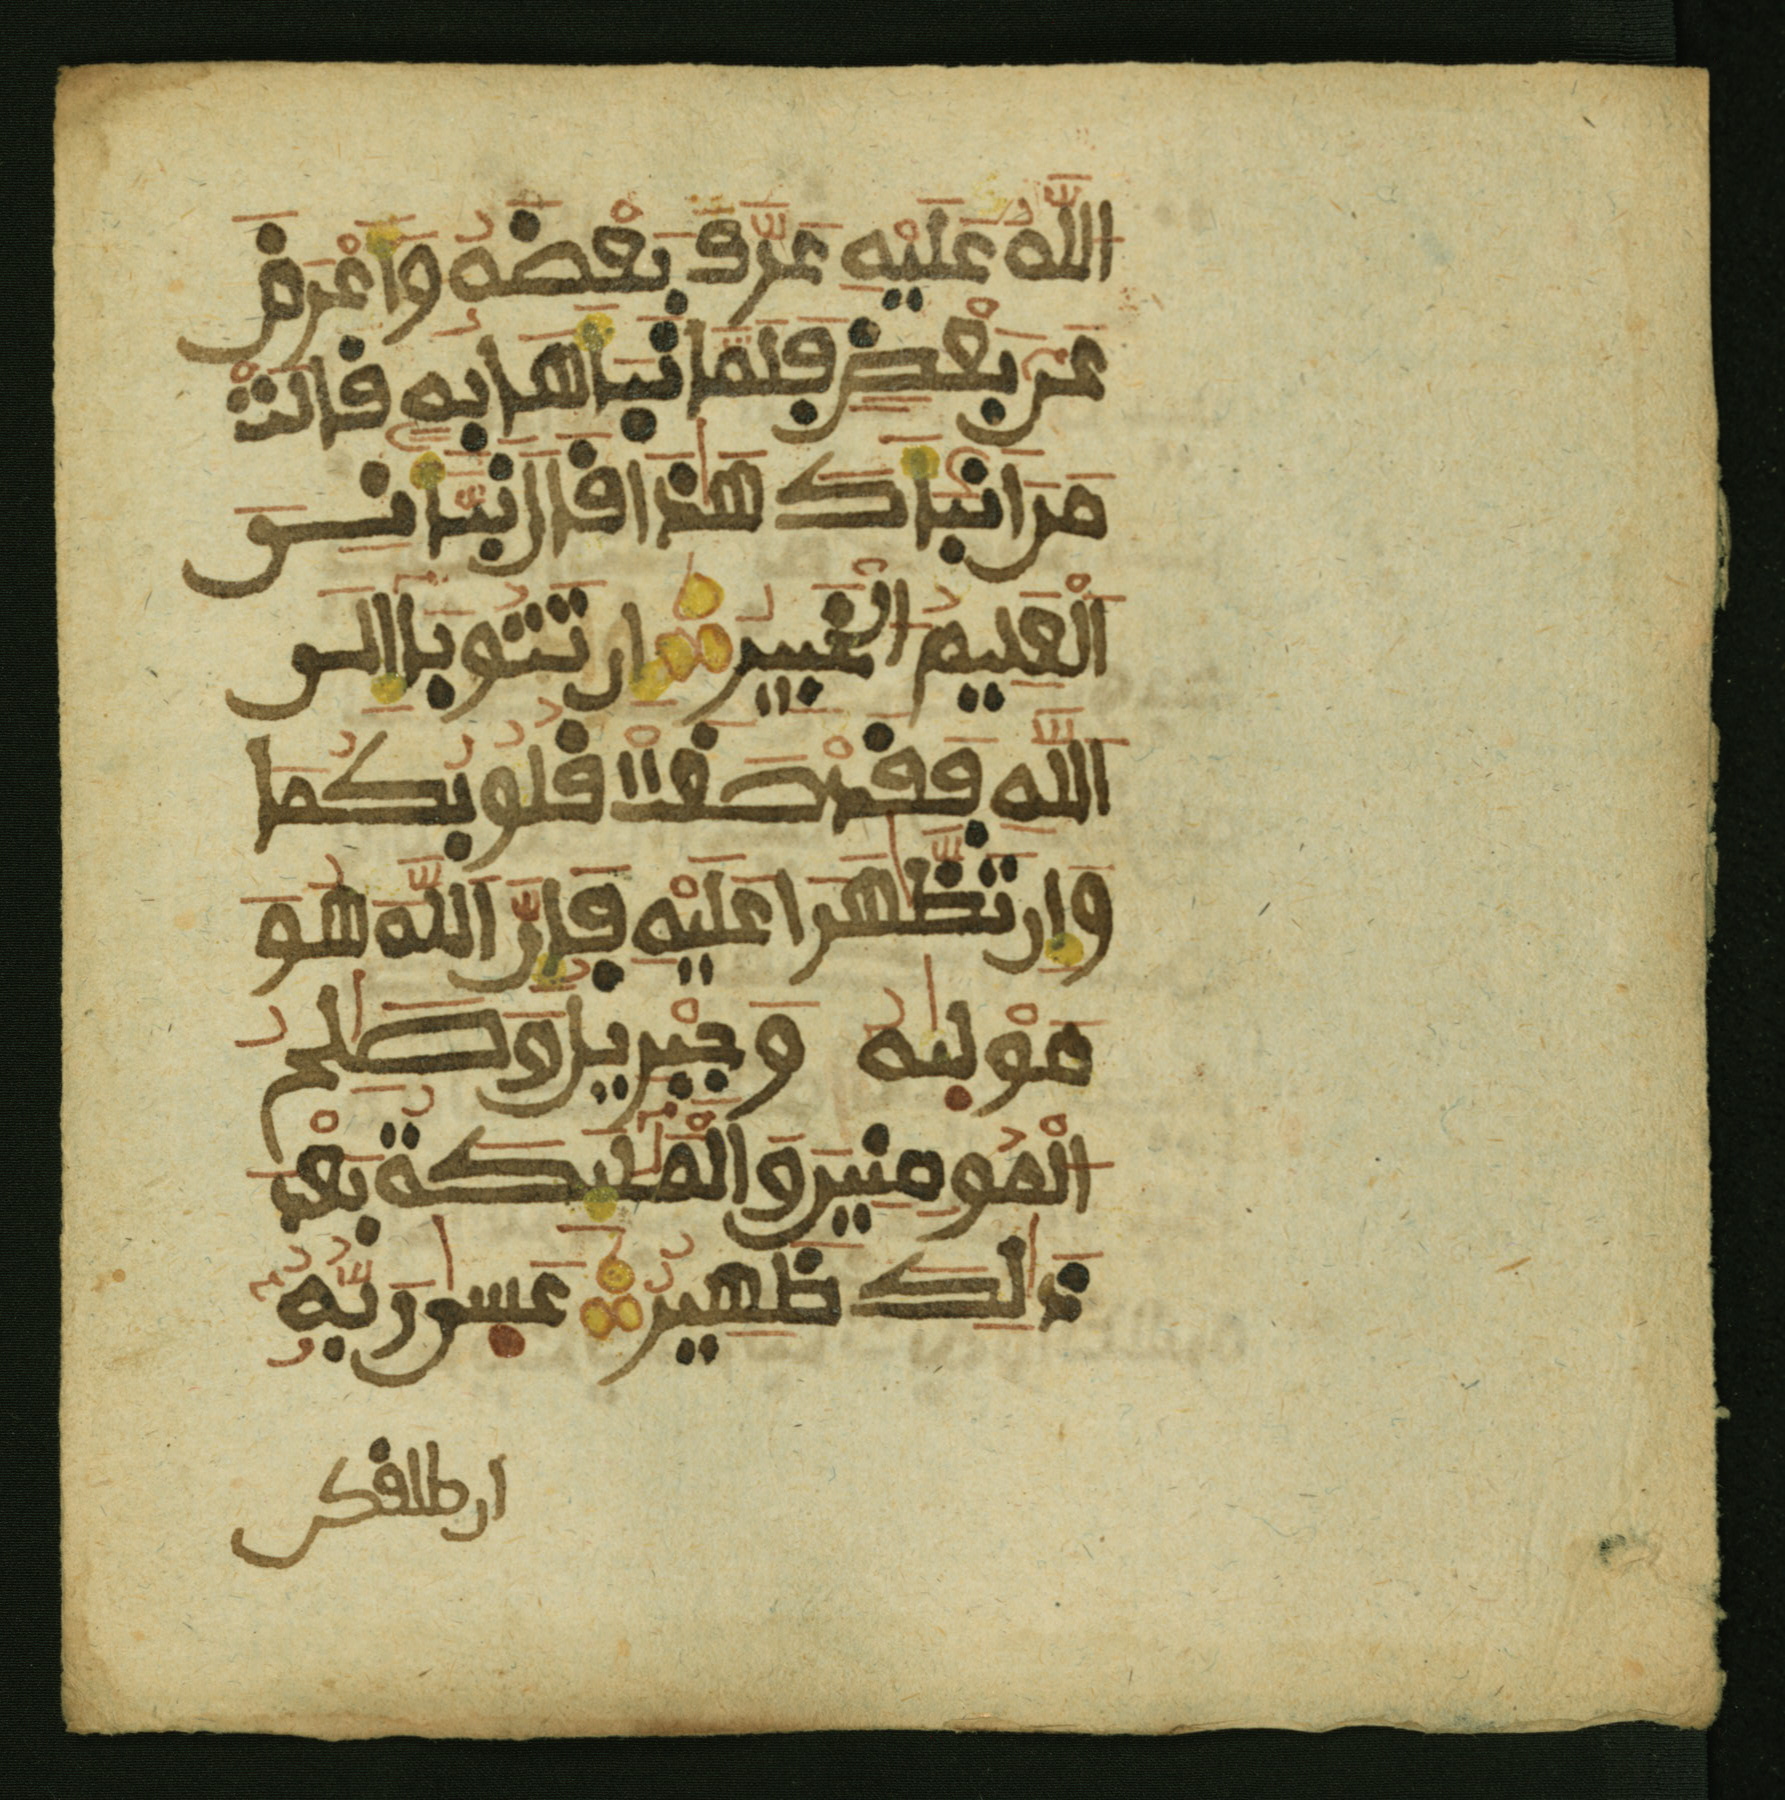 اللَّهُ عَلَيْهِ عَرَّفَ بَعْضَهُ وَأَعْرَضَ
عَنۢ بَعْضٍ فَلَمَّا نَبَّأَهَا بِهِ قَالَتْ
مَنَ انۢبَأَكَ هَٰذَا قَالَ نَبَّأَنِيَ
الْعَلِيمُ الْخَبِيرُ إِن تَتُوبَا إِلَى
اللَّهِ فَقَدْ صَغَتْ قُلُوبُكُمَا
وَإِن تَظَّٰهَرَا عَلَيْهِ فَإِنَّ اللَّهَ هُوَ
مَوْلَيٰهُ وَجِبْرِيلُ وَصَٰلِحُ
الْمُومِنِينَ وَالْمَلَٰئِكَةُ بَعْدَ
ذَٰلِكَ ظَهِيرٌ عَسَىٰ رَبُّهُ
ان طلقكن